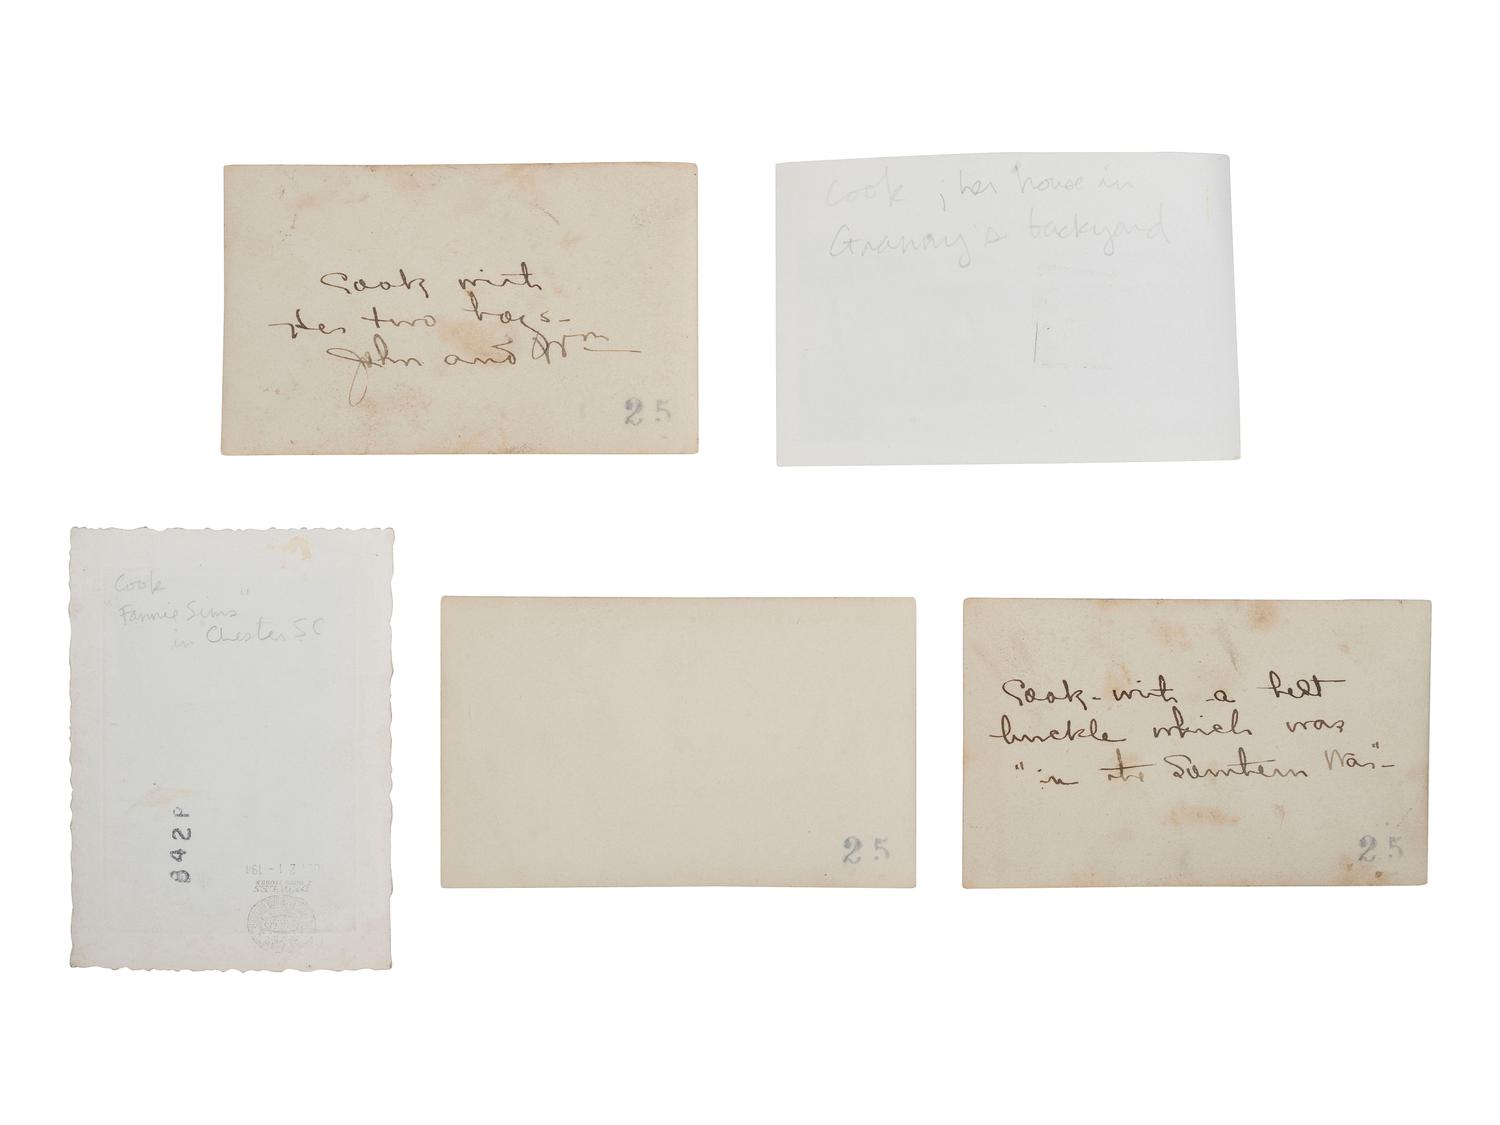 Cook with
Her two boys -
John and Wm
25
Cook ; her house in
Granny's backyard
Cook
"Fannie Sims"
in Chester SC
842P
OCT 21 - 194
25
Cook - with a belt
buckle which was
"in the Southern War" -
25